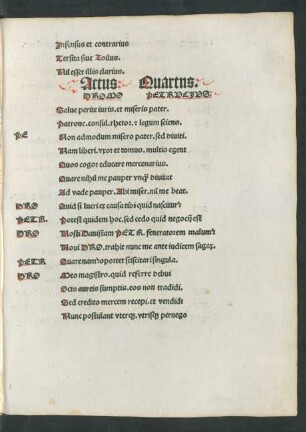 Infensus et contrarius
Tersita siue Zoilus.
Nil esset illis clarius.
Actus Quartus.
DROMO PETRUCIUS.
Salue perite iuris. et miseris pater.
Patrone. consul. rhetor. et legum sciens.
PE Non admodum misero pater. sed diuiti.
Nam liberi. vxor et domus. multis egent
Quos cogor educare mercenarius.
Quare nihil me pauper vnquam diuitat
Ad vade pauper. Abi miser. nil me beat.
DRO Quid si lucri ex causa tibi quid nascitur
PETR. Potest quidem hoc. sed cedo quid negocii est
DRO Nosti Danistam PETR. feneratorem malum
Noui DRO. trahit nunc me ante iudicem sagax.
PETR Quarenam oportet sciscitari singula.
DRO Meo magistro. quid referre debui
Octo aureis sumptis. eos non tradidi.
Sed credito mercem recepi. et vendidi
Nunc postulant vterque. vtrisque pernego